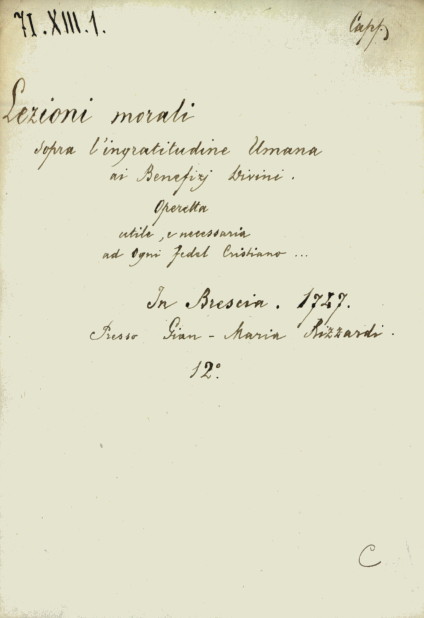 71.XIII.1.
Capp.
Lezioni morali
sopra l'ingratitudine Umana
ai Benefizj Divini.
Operetta
utile, e necessaria
ad Ogni Fedel Cristiano ...
In Brescia. 1727.
Presso Gian-Maria Rizzardi.
12°.
C